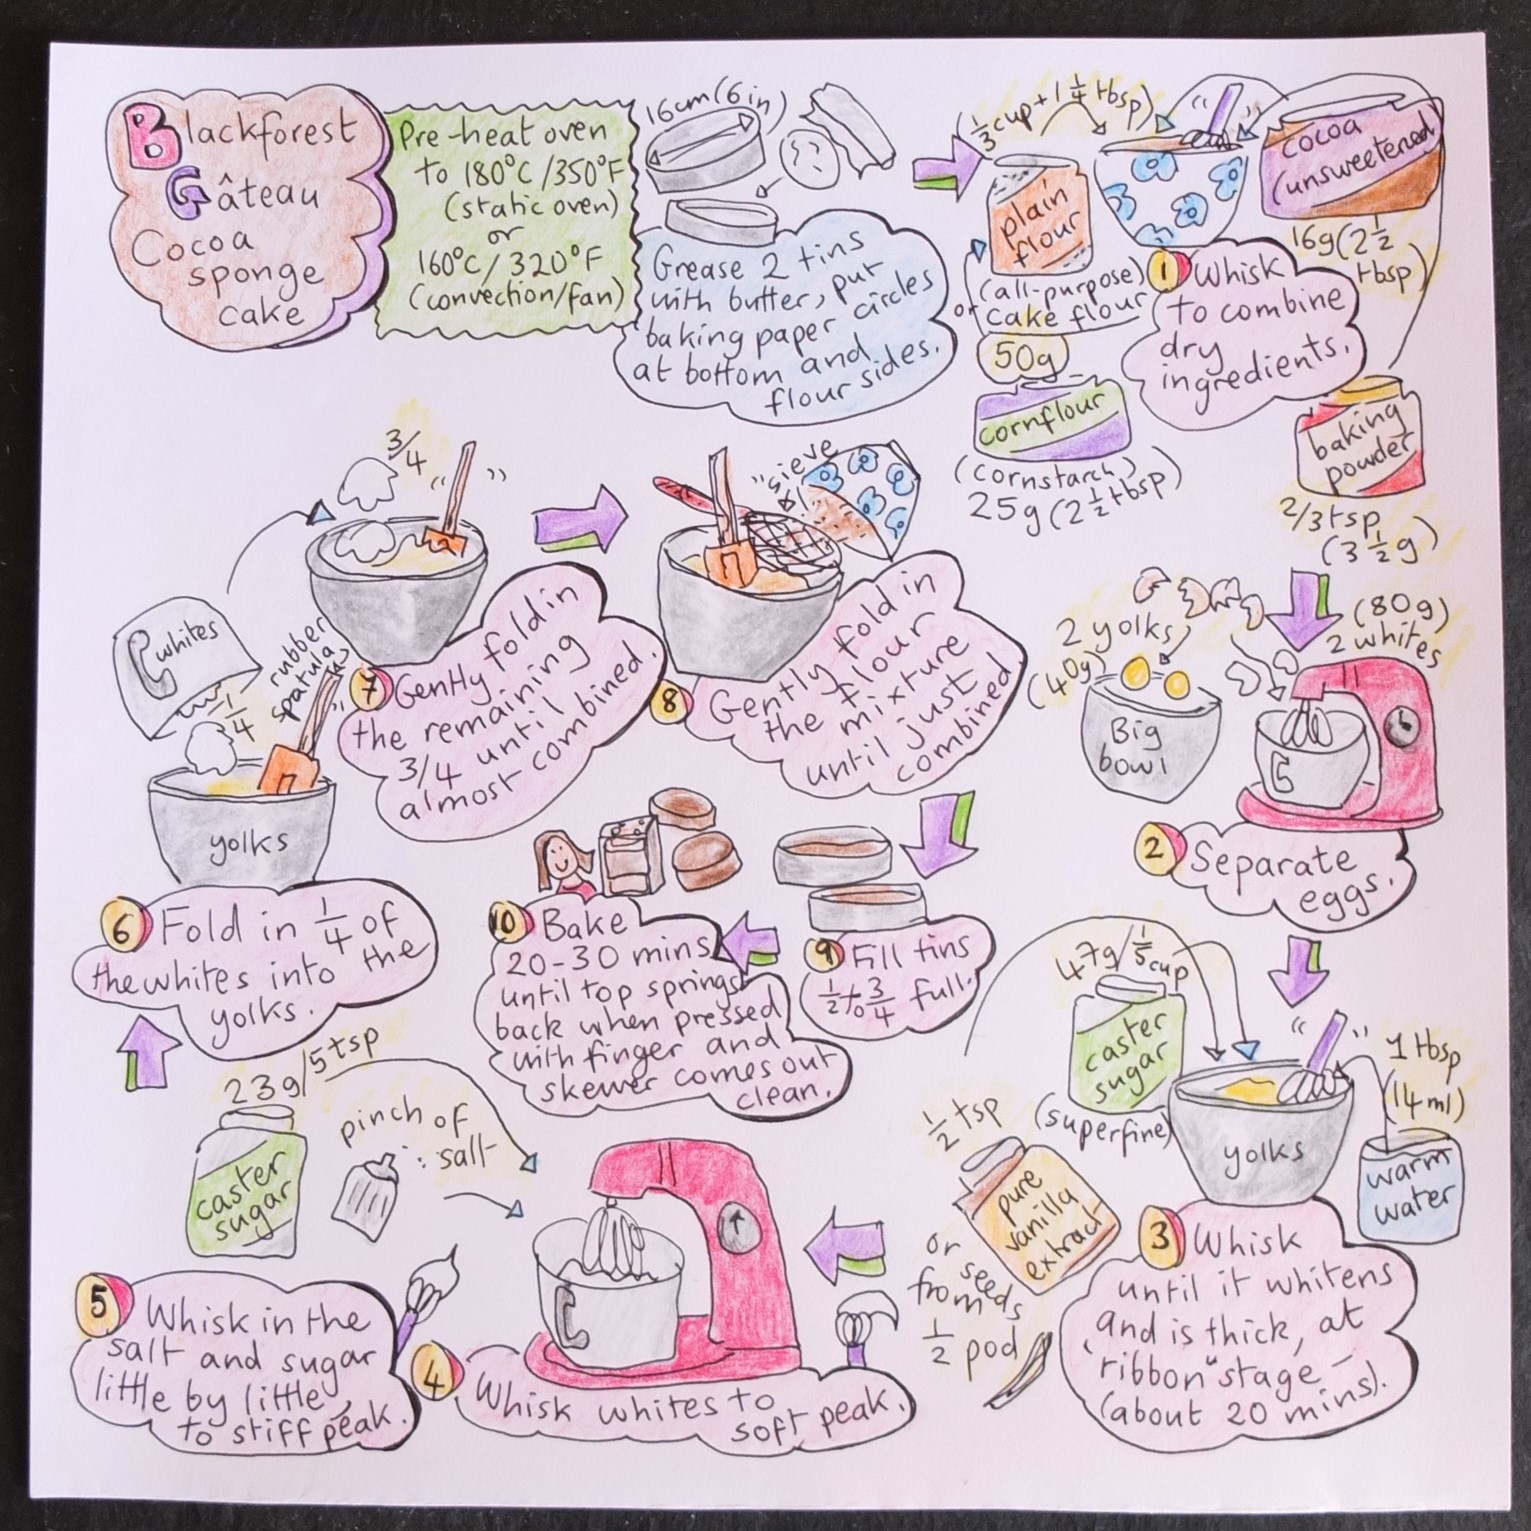 Blackforest
Gâteau
Cocoa
sponge
cake
Pre-heat oven
to 180°C/350°F
(static oven)
or
160°C/320°F
(convection/fan)
16cm (6in)
Grease 2 tins
with butter, put
baking paper circles
at bottom and
flour sides.
(1/3 cup + 1 1/4 tbsp)
plain
flour
(all-purpose)
or cake flour
50g
cornflour
(cornstarch)
25g (2 1/2 tbsp)
cocoa
(unsweetened)
16g (2 1/2
tbsp)
baking
powder
2/3 tsp
(3 1/2 g)
1 Whisk
to combine
dry
ingredients.
2 yolks
(40g)
Big
bowl
(80g)
2 whites
2 Separate
eggs.
47g/1/5 cup
caster
sugar
(superfine)
yolks
1 tbsp
(14ml)
warm
water
1/2 tsp
pure
vanilla
extract
or
seeds
from
1/2 pod
3 Whisk
until it whitens
and is thick, at
"ribbon" stage
(about 20 mins).
4 Whisk whites to
soft peak.
23g/5tsp
caster
sugar
pinch of
salt
5 Whisk in the
salt and sugar
little by little,
to stiff peak.
whites
1/4
rubber
spatula
yolks
6 Fold in 1/4 of
the whites into the
yolks.
3/4
7 Gently fold in
the remaining
3/4 until
almost combined.
sieve
8 Gently fold in
the flour
mixture
until just
combined.
9 Fill tins
1/2 to 3/4 full.
10 Bake
20-30 mins
until top springs
back when pressed
with finger and
skewer comes out
clean.